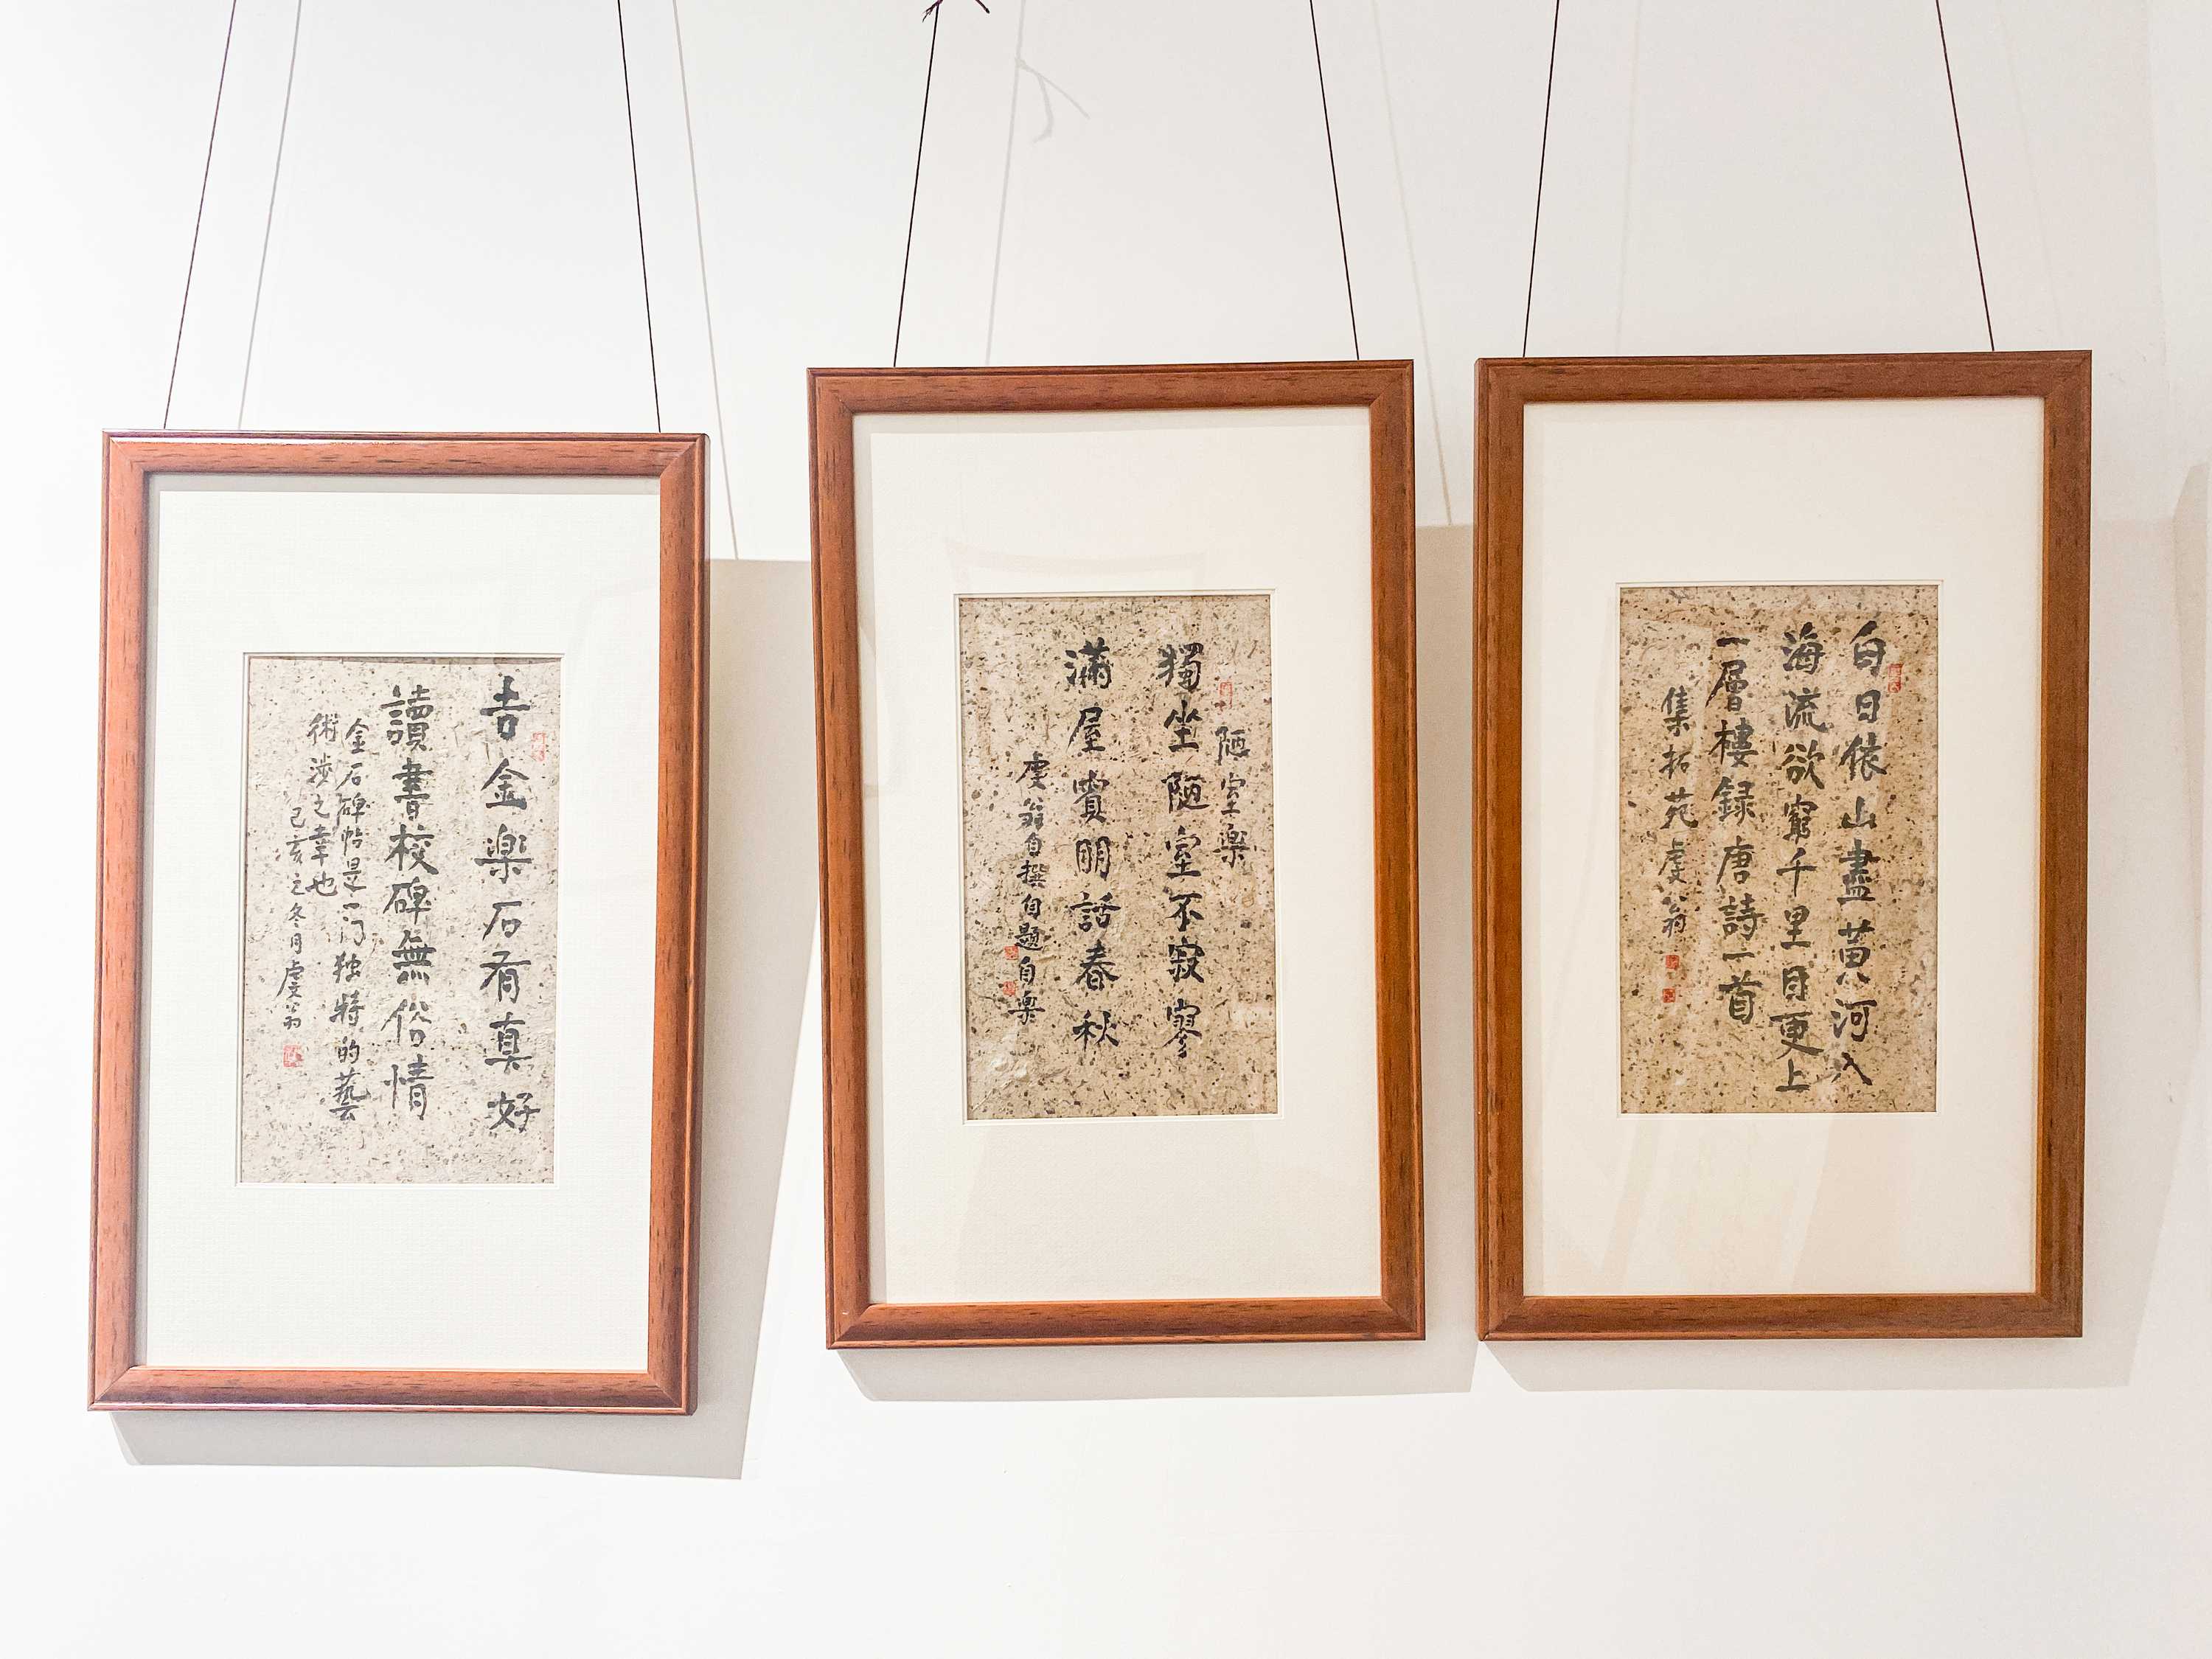 白日依山盡黄河入
海流欲窮千里目更上
一層樓録唐詩一首
集拓苑虔翁
陋室樂
獨坐陋室不寂寥
滿屋賓朋話春秋
虔翁自撰自題自樂
吉金樂石有真好
讀書校碑無俗情
金石碑帖是一门独特的藝
術涉之幸也
己亥之冬月虔翁